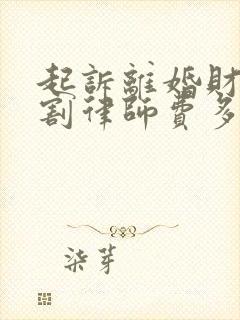 起訴離婚財
割律師費多
柒芽